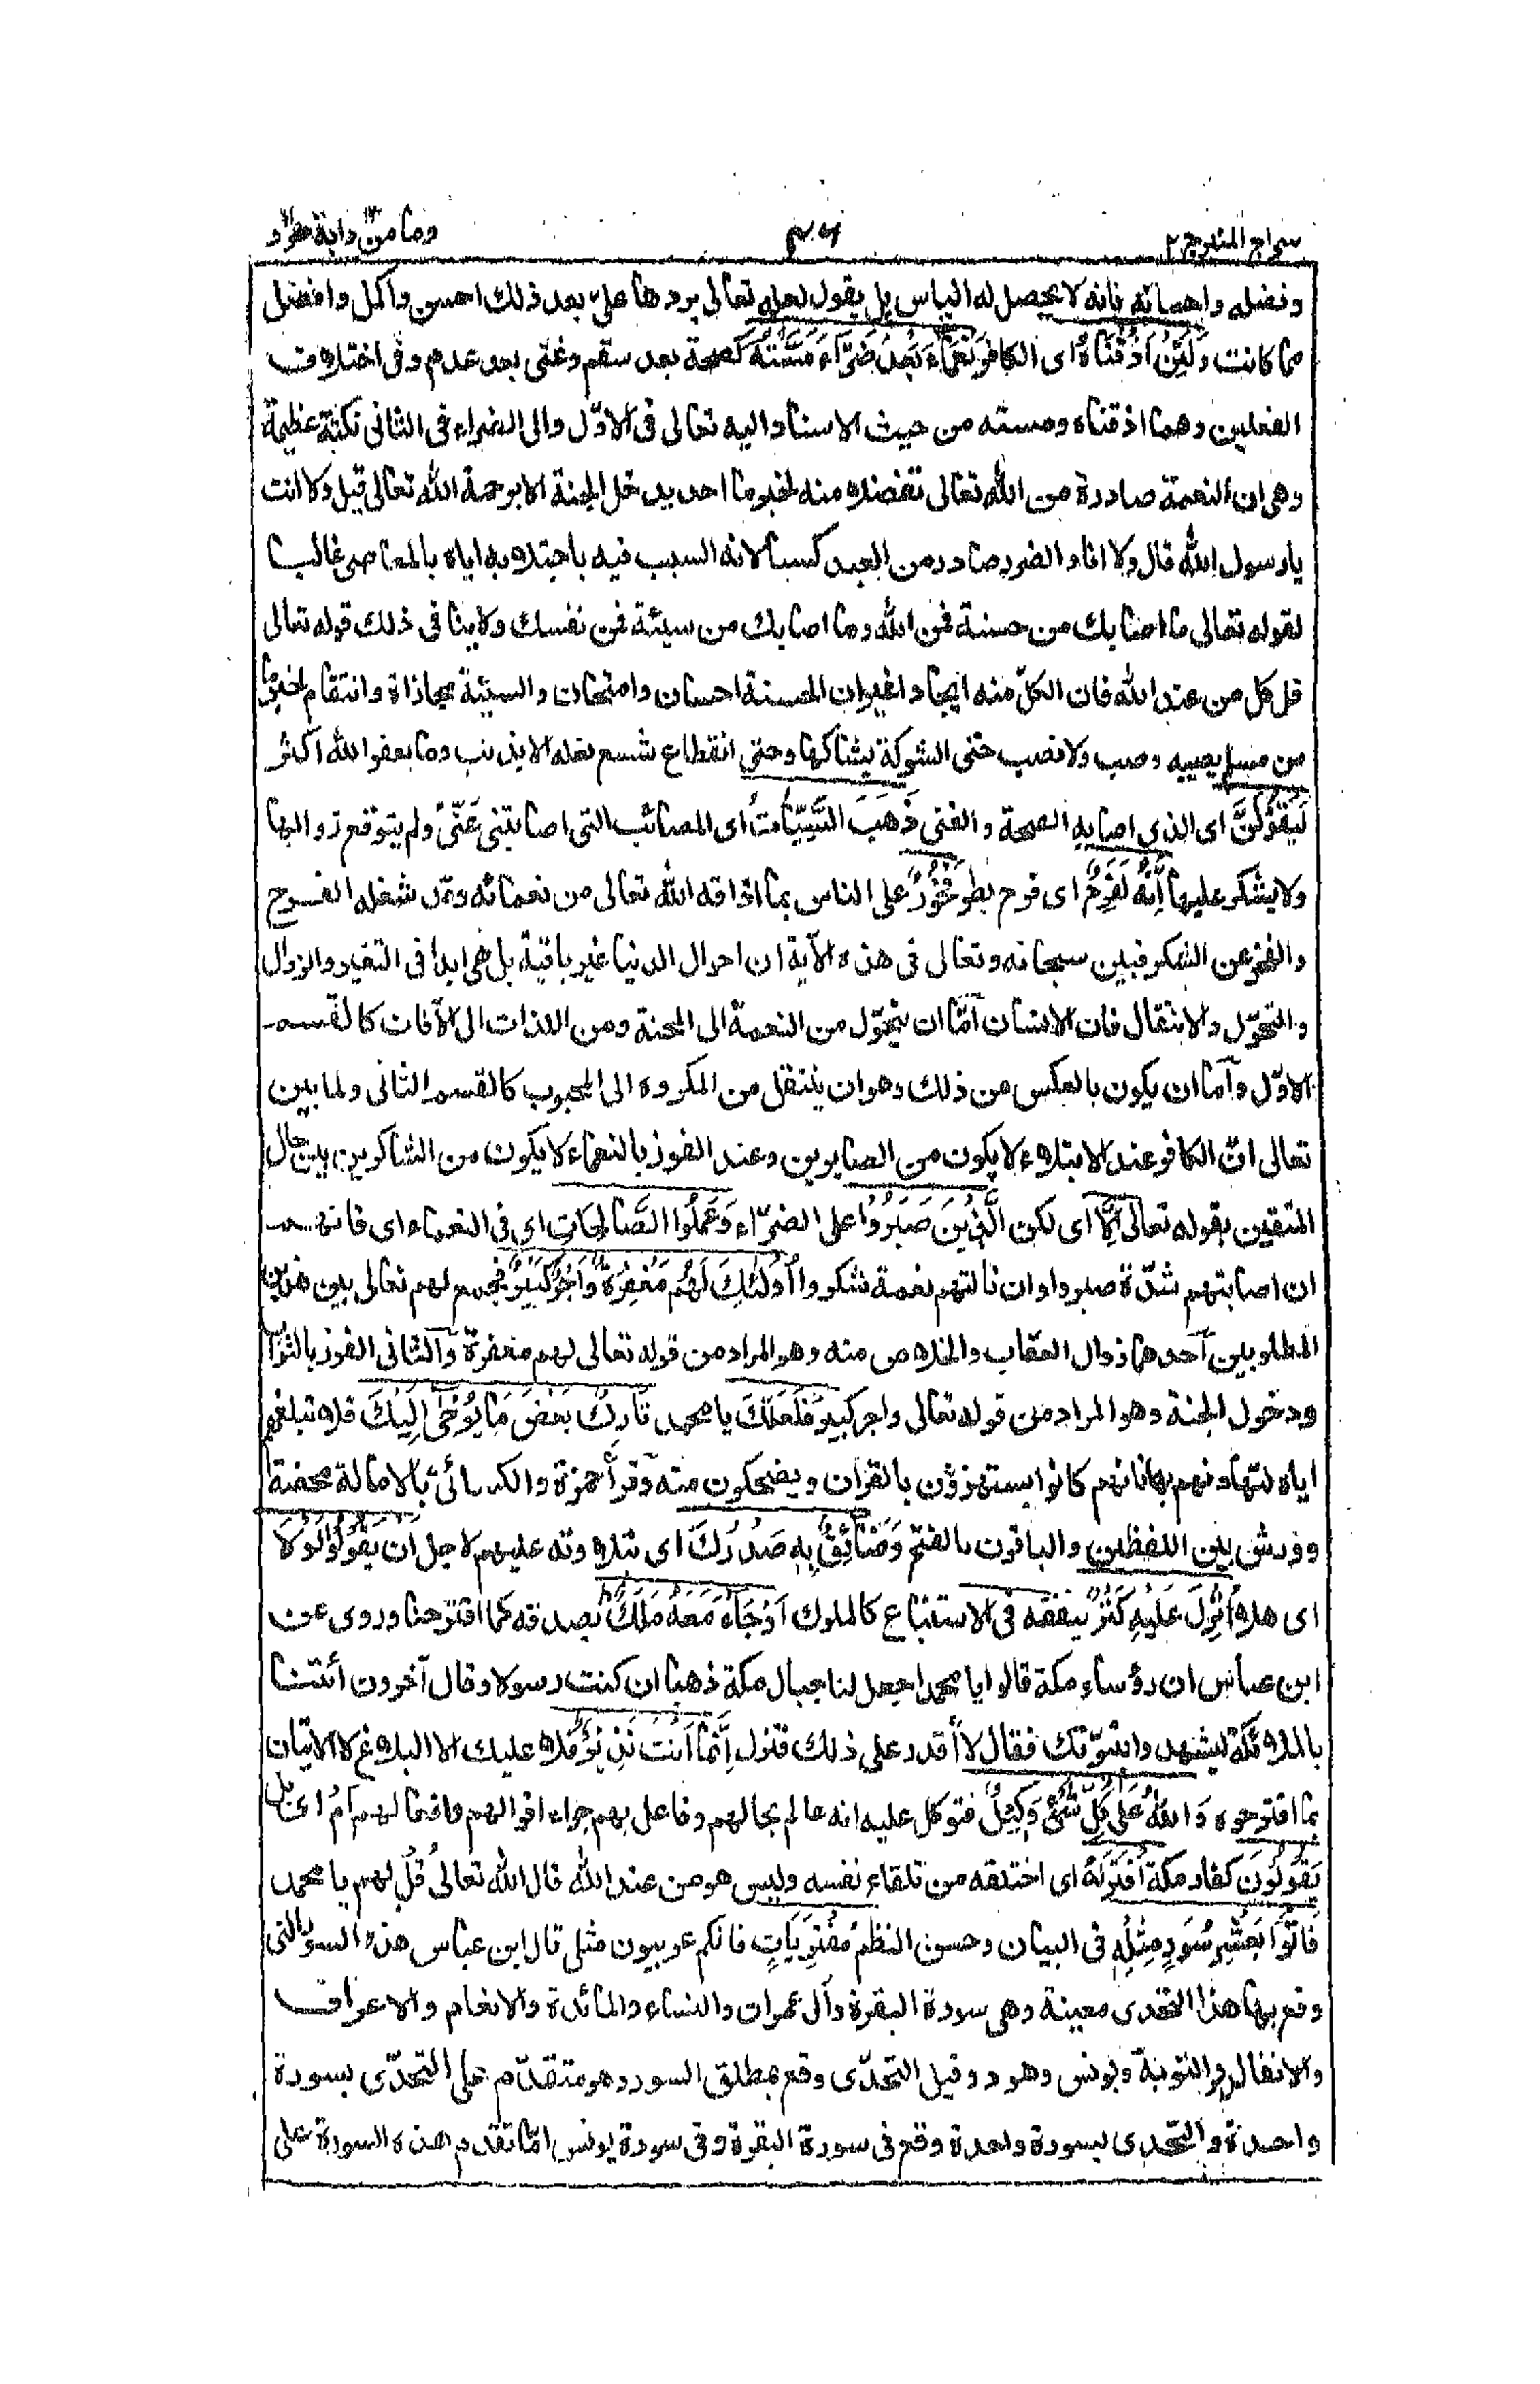 سراج المنير ج٢ ٤٦ وما من دابة هود
وفضله واحسانه فانه لا يحصل له الياس بل يقول لعله تعالى يردها علىّ بعد ذلك احسن واكمل وافضل
مما كانت وَلَئِنْ اَذَقْنَاهُ اى الكافر نَعْمَاءَ بَعْدَ ضَرَّآءَ مَسَّتْهُ كصحة بعد سقم وغنى بعد عدم وفى اختلاف
الفعلين وهما اذقناه ومسته من حيث الاسناد اليه تعالى فى الاوّل والى الضراء فى الثانى نكتة عظيمة
وهى ان النعمة صادرة من الله تعالى تفضلا منه لخبر ما احد يدخل الجنة الا برحمة الله تعالى قيل ولا انت
يا رسول الله قال ولا انا والضرر صادر من العبد كسبا لانه السبب فيه باجتلابه اياه بالمعاصى غالبا
لقوله تعالى ما اصابك من حسنة فمن الله وما اصابك من سيئة فمن نفسك ولا ينافى ذلك قوله تعالى
قل كل من عند الله فان الكلّ منه ايجادا غير ان الحسنة احسان وامتحان والسيئة مجازاة وانتقام لخبر ما
من مسلم يصيبه وصب ولا نصب حتى الشوكة يشاكها وحتى انقطاع شسع نعله الا بذنب وما يعفو الله اكثر
لَيَقُوْلَنَّ اى الذى اصابه الصحة والغنى ذَهَبَ السَّيِّاٰتُ اى المصائب التى اصابتنى عَنِّىْ ولم يتوقع زوالها
ولا يشكر عليها اِنَّهٗ لَفَرِحٌ اى فرح بطر فَخُوْرٌ على الناس بما اذاقه الله تعالى من نعمائه وقد شغله الفرح
والفخر عن الشكر فبين سبحانه وتعالى فى هذه الآية ان احوال الدنيا غير باقية بل هى ابدا فى التغير والزوال
والتحوّل والانتقال فان الانسان امّا ان يتحوّل من النعمة الى المحنة ومن اللذات الى الآفات كالقسم
الاوّل وامّا ان يكون بالعكس من ذلك وهو ان ينتقل من المكروه الى المحبوب كالقسم الثانى ولما بين
تعالى انّ الكافر عند الابتلاء لا يكون من الصابرين وعند الفوز بالنعماء لا يكون من الشاكرين بين حال
المتقين بقوله تعالى اِلَّا اى لكن الَّذِيْنَ صَبَرُوْا على الضرّاء وَعَمِلُوا الصَّالِحَاتِ اى فى النعماء اى فانهم
ان اصابتهم شدّة صبروا وان نالتهم نعمة شكروا اُولٰئِكَ لَهُمْ مَغْفِرَةٌ وَاَجْرٌ كَبِيْرٌ فجمع لهم تعالى بين هذين
المطلوبين احدهما زوال العقاب والخلاص منه وهو المراد من قوله تعالى لهم مغفرة والثانى الفوز بالثواب
ودخول الجنة وهو المراد من قوله تعالى واجر كبير فَلَعَلَّكَ يا محمد تَارِكٌ بَعْضَ مَا يُوْحٰى اِلَيْكَ فلا تبلغهم
اياه لتهاونهم بها فانهم كانوا يستهزؤن بالقرآن ويضحكون منه وقرأ حمزة والكسائى بالامالة محضة
وورش بين اللفظين والباقون بالفتح وَضَائِقٌ بِهٖ صَدْرُكَ اى بتلاوته عليهم لاجل اَنْ يَقُوْلُوْا لَوْلَا
اى هلا اُنْزِلَ عَلَيْهِ كَنْزٌ ينفقه فى الاستتباع كالملوك اَوْ جَآءَ مَعَهٗ مَلَكٌ يصدقه كما اقترحنا وروى عن
ابن عباس ان رؤساء مكة قالوا يا محمد اجعل لنا جبال مكة ذهبا ان كنت رسولا وقال آخرون ائتنا
بالملائكة ليشهدوا بنبوّتك فقال لا أقدر على ذلك فنزل اِنَّمَا اَنْتَ نَذِيْرٌ فلا عليك الا البلاغ لا الاتيان
بما اقترحوه وَاللهُ عَلٰى كُلِّ شَىْءٍ وَكِيْلٌ فتوكل عليه انه عالم بحالهم وفاعل بهم جزاء اقوالهم وافعالهم اَمْ اى بل
يَقُوْلُوْنَ كفار مكة افْتَرٰىهُ اى اختلقه من تلقاء نفسه وليس هو من عند الله قال الله تعالى قُلْ لهم يا محمد
فَاْتُوْا بِعَشْرِ سُوَرٍ مِثْلِهٖ فى البيان وحسن النظم مُفْتَرَيَاتٍ فانكم عربيون مثلى قال ابن عباس هذه السور التى
وقع بها هذا التحدى معينة وهى سورة البقرة وآل عمران والنساء والمائدة والانعام والاعراف
والانفال والتوبة ويونس وهود وقيل التحدّى وقع بمطلق السور وهو متقدّم على التحدّى بسورة
واحدة والتحدى بسورة واحدة وقع فى سورة البقرة وفى سورة يونس امّا تقدم هذه السورة على